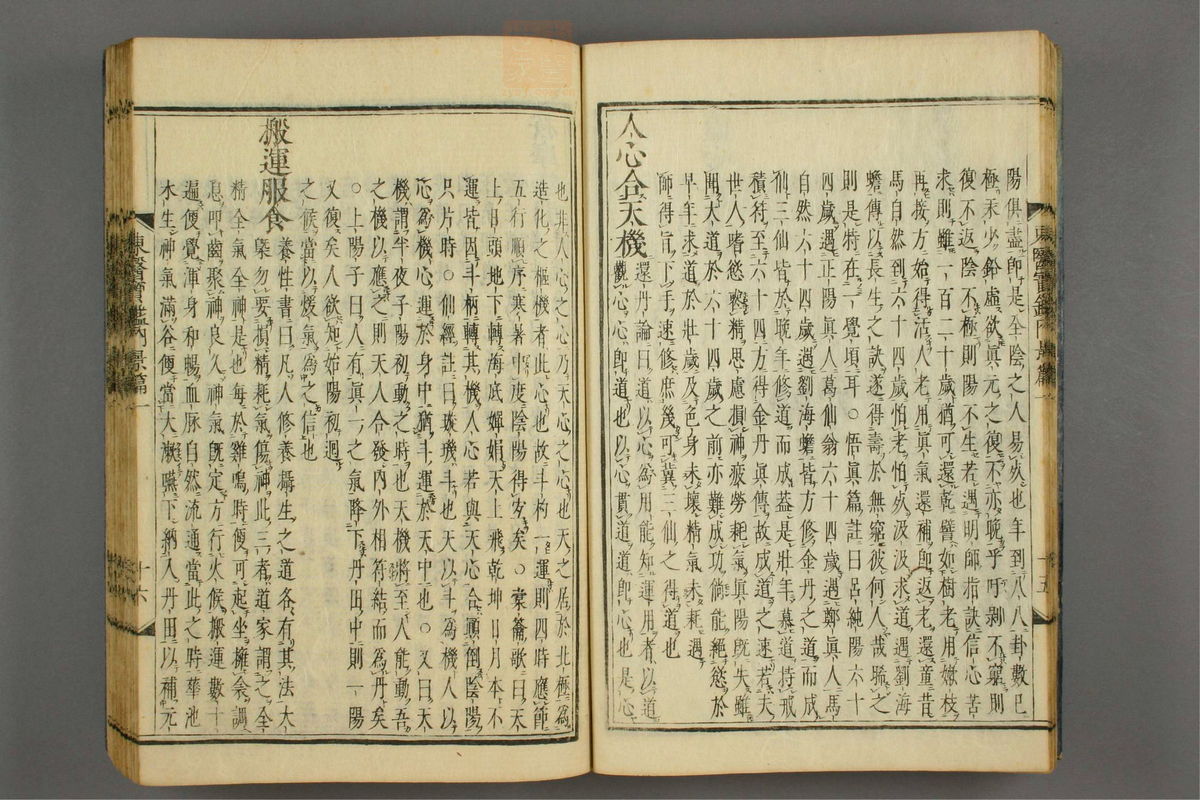 陽俱盡即是全陰之人易灰也年到八八卦數已
極汞少鉛虛欲眞元之復不亦晚乎吁剥不窮則
復不返陰不極則陽不生若遇明師指訣信心苦
求則雖一百二十歲猶可還乾譬如樹老用嫩枝
再接方始得活人老用眞氣還補即返老還童昔
馬自然到六十四歲怕老怕死汲汲求道遇劉海
蟾傳以長生之訣遂得壽於無窮彼何人哉睎之
則是特在一覺頃耳○悟眞篇註曰呂純陽六十
四歲遇正陽眞人葛仙翁六十四歲遇鄭眞人馬
自然六十四歲遇劉海蟾皆方修金丹之道而成
仙三仙皆於晚年修道而成蓋是壯年慕道持戒
積符至六十四方得金丹眞傳故成道之速若夫
世人嗜慾喪精思慮損神疲勞耗氣眞陽既失雖
聞大道於六十四歲之前亦難成功倘能絕慾於
早年求道於壯歲及色身未壞精氣未耗遇
師得旨下手速修庶幾可冀三仙之得道也
人心合天機
還丹論曰道以心爲用能知運用者以道
觀心心即道也以心貫道道即心也是心
東醫寶鑑內景篇一
十五
也非人心之心乃天心之心也天之居於北極爲
造化之樞機者此心也故斗杓一運則四時應節
五行順序寒暑中度陰陽得宜矣○橐籥歌曰天
上日頭地下轉海底嬋娟天上飛乾坤日月本不
運皆因斗柄轉其機人心若與天心合顚倒陰陽
只片時○仙經註曰璇璣斗也天以斗爲機人以
心爲機心運於身中猶斗運於天中也○又曰天
機謂半夜子陽初動之時也天機將至人能動吾
之機以應之則天人合發內外相符結而爲丹矣
○上陽子曰人有眞一之氣降下丹田中則一陽
又復矣人欲知始陽初迴
之候當以煖氣爲之信也
搬運服食
養性書曰凡人修養攝生之道各有其法大
槩勿要損精耗氣傷神此三者道家謂之全
精全氣全神是也每於雞鳴時便可起坐擁衾調
息叩齒聚神良久神氣既定方行火候搬運數十
遍便覺渾身和暢血脉自然流通當此之時華池
水生神氣滿谷便當大漱嚥下納入丹田以補元
東醫寶鑑內景篇一
十六